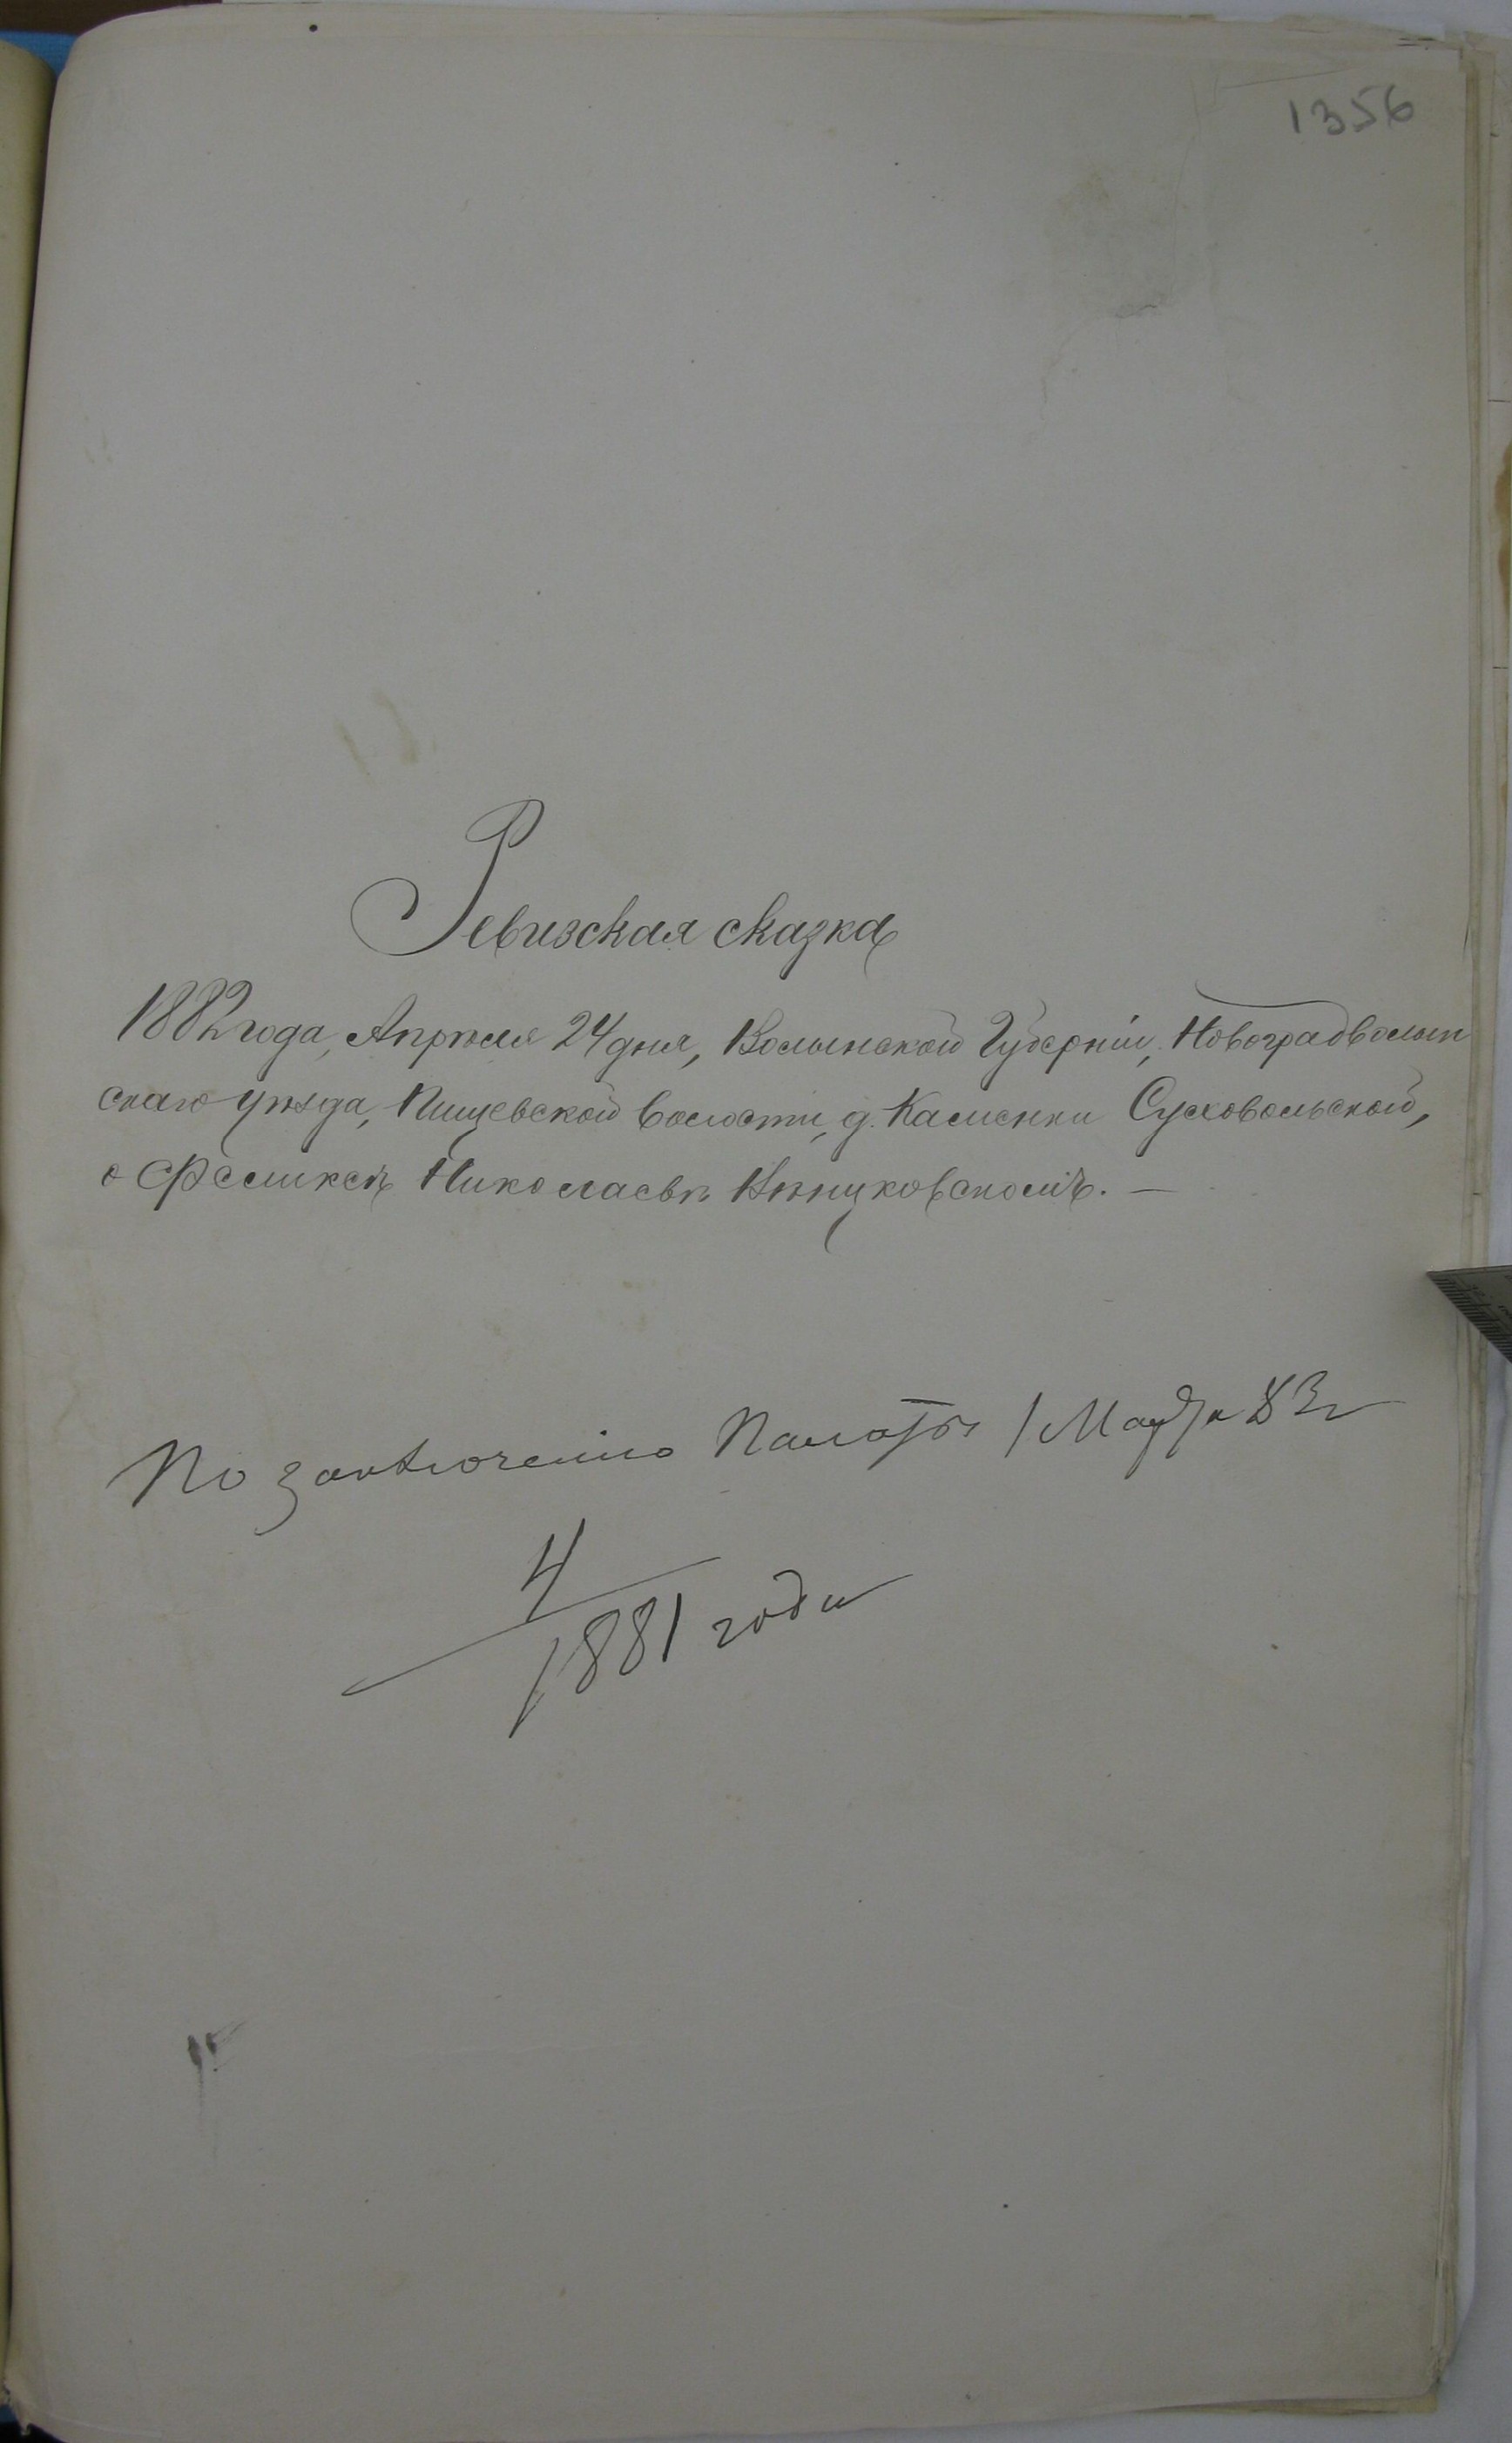 1356
Ревизская сказка
1882 года, Апрѣля 24 дня, Волынской Губерніи, Новоградволын
скаго уѣзда, Пищевской волости, д. Каменки Суховольской,
о Феликсѣ Николаевѣ
По заключенію Палаты 1 Марта 83 г
4
1881 года